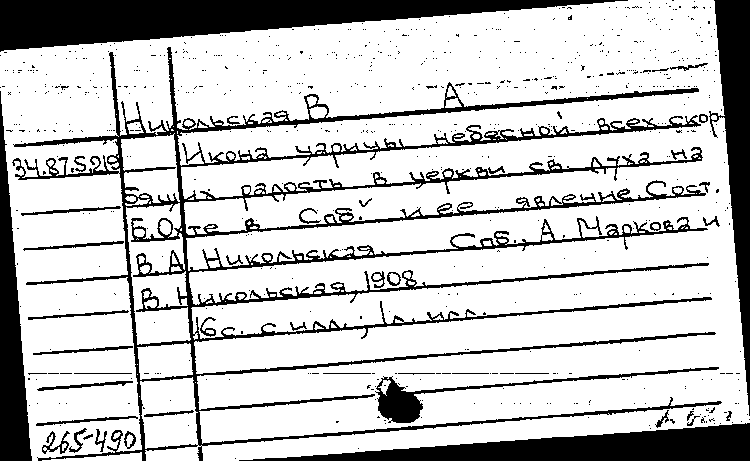 Никольская, В А
34.87.5.219 Икона царицы небесной всех скор-
бящих радость в церкви св. духа на
Б. Охте в Спб. и ее явление. Сост.
В. А. Никольская. Спб., А. Маркова и
В. Никольская, 1908.
16 с. с илл.; 1 л. илл.
265-490